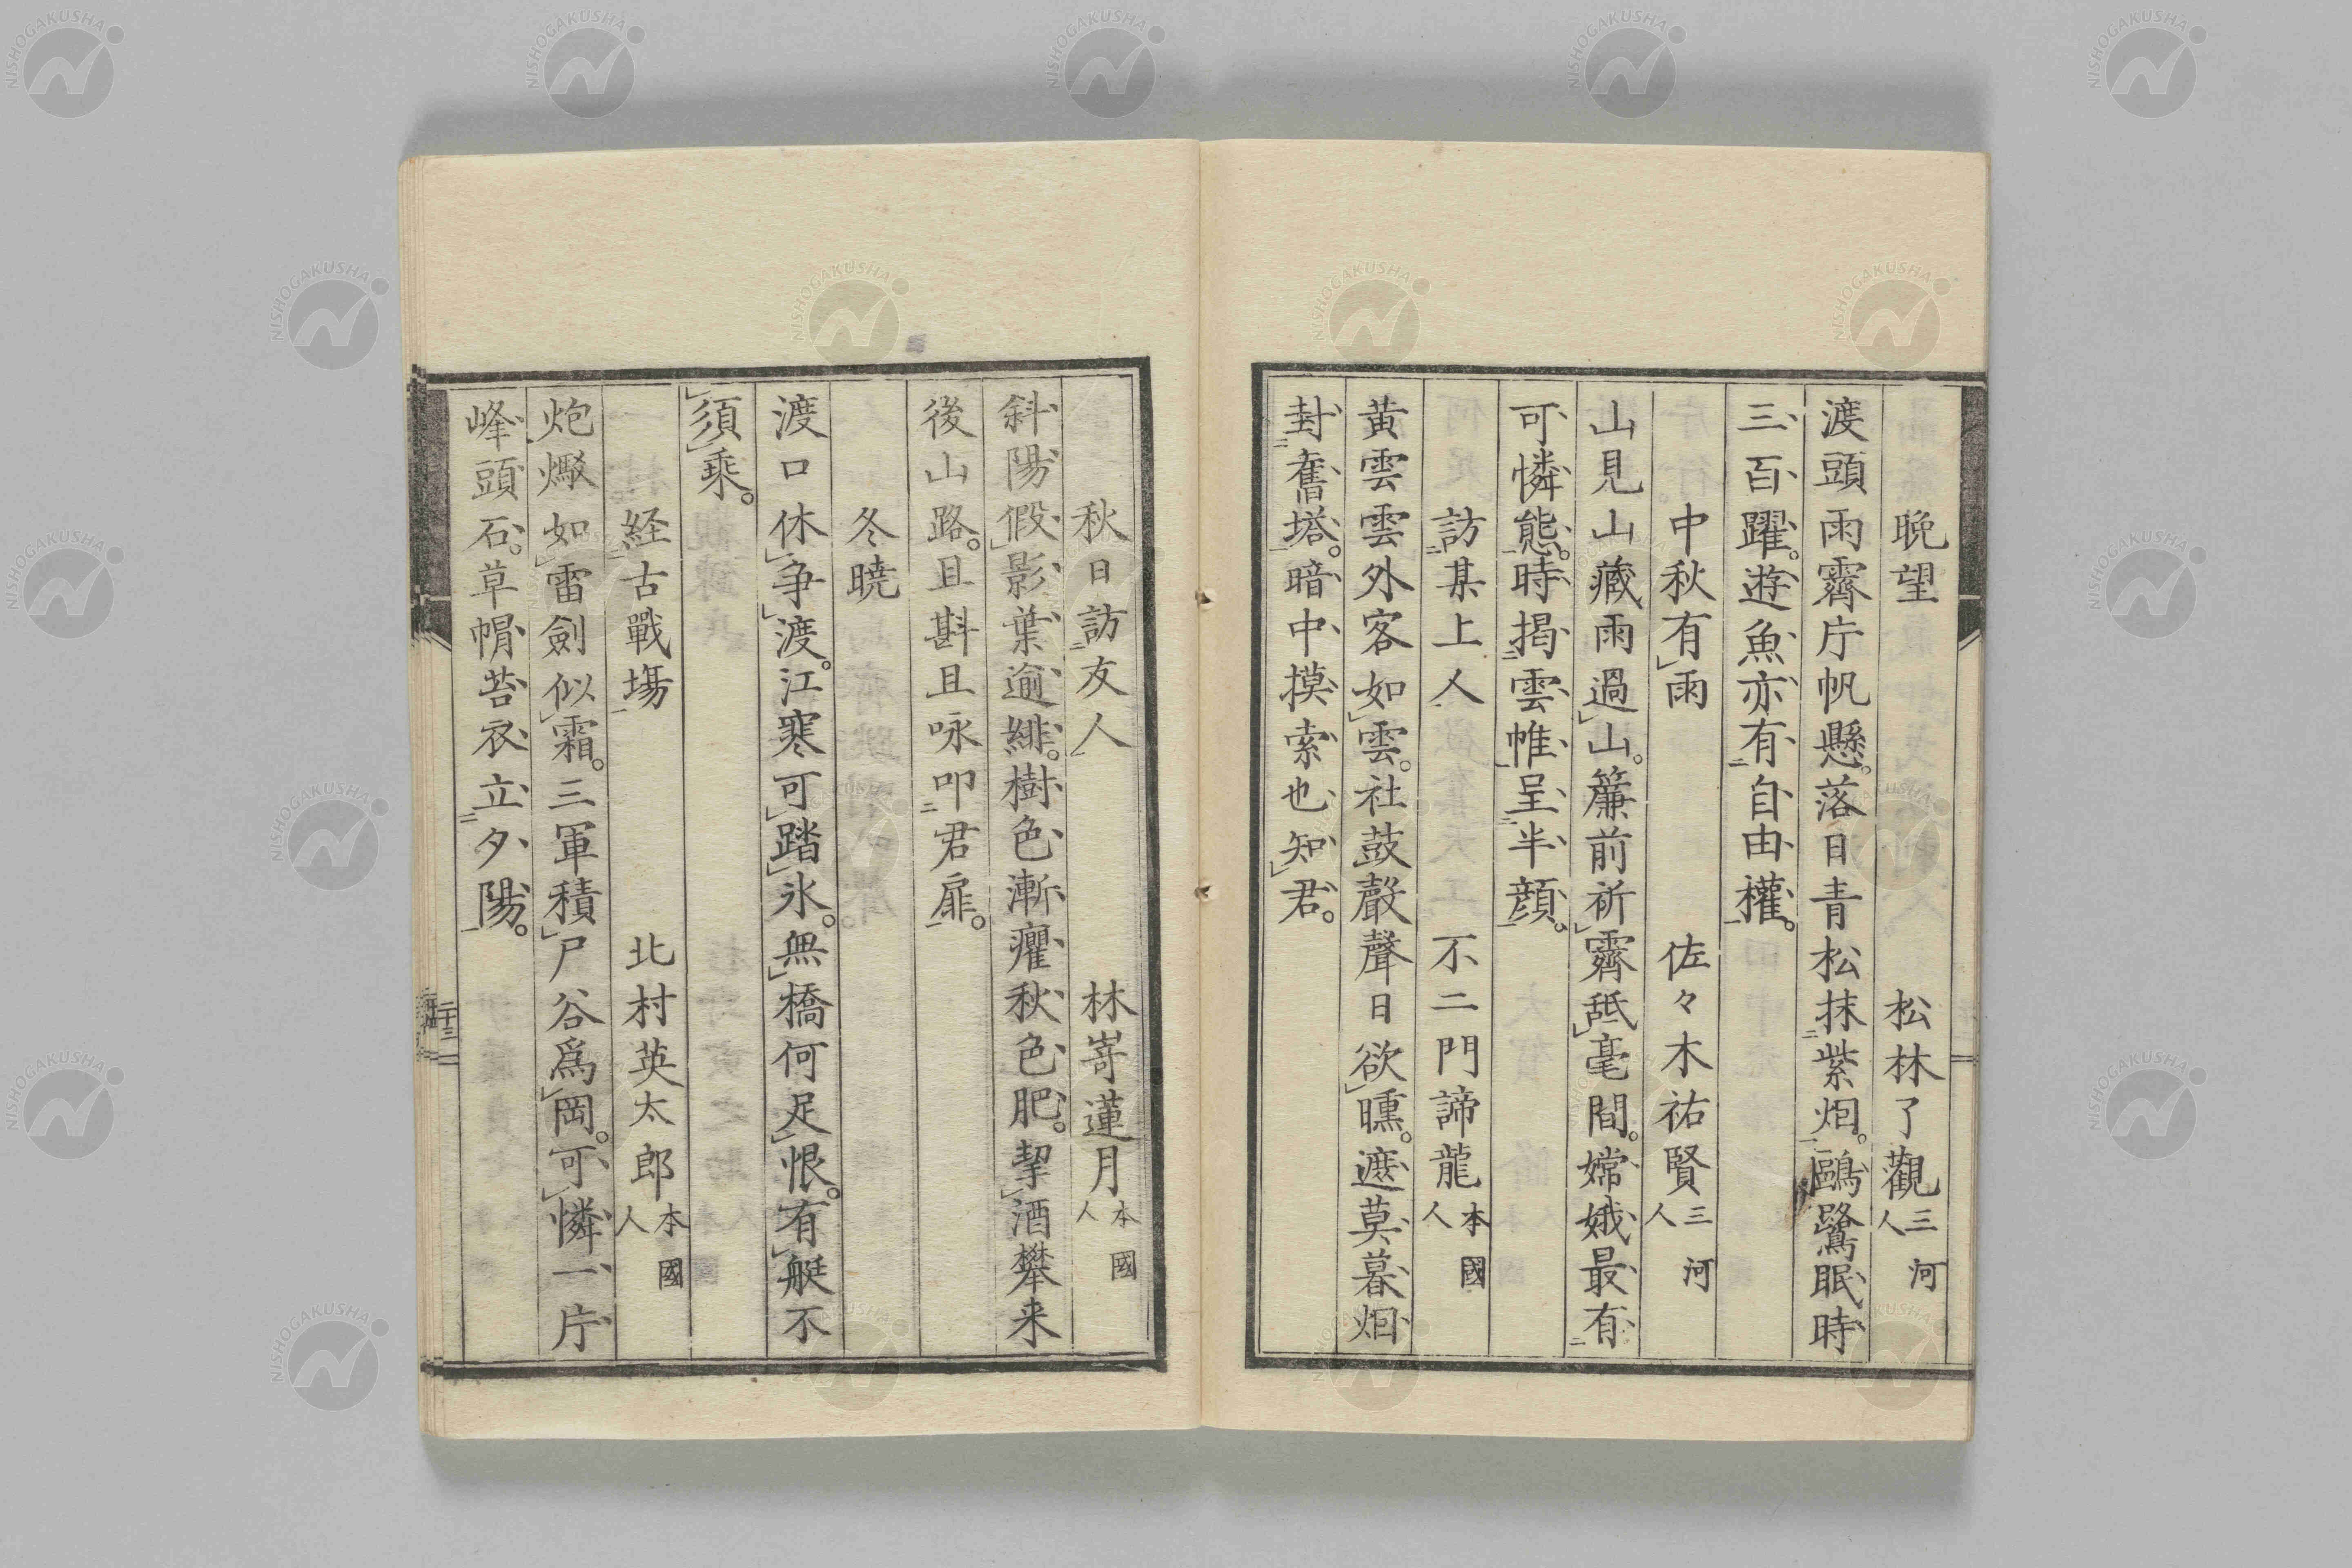 晩望 松林了觀 三河人
渡頭雨霽庁帆懸。落日青松抹紫烟。鷗鷺眠時
三百躍。遊魚亦有自由權。
中秋有雨 佐々木祐賢 三河人
山見山藏雨過山。簾前祈霽舐毫間。嫦娥最有
可憐態。時掲雲帷呈半顔。
訪某上人 不二門諦龍 本國人
黄雲雲外客如雲。社鼓聲聲日欲曛。遮莫暮烟
封舊塔。暗中摸索也知君。
秋日訪友人 林嵜蓮月 本國人
斜陽假影葉逾緋。樹色漸癯秋色肥。挈酒攀来
後山路。且斟且咏叩君扉。
冬曉
渡口休爭渡。江寒可踏氷。無橋何足恨。有艇不
須乘。
経古戰塲 北村英太郎 本國人
炮煅如雷劍似霜。三軍積尸谷爲岡。可憐一片
峰頭石。草帽苔衣立夕陽。
二十三
NISHOGAKUSHA